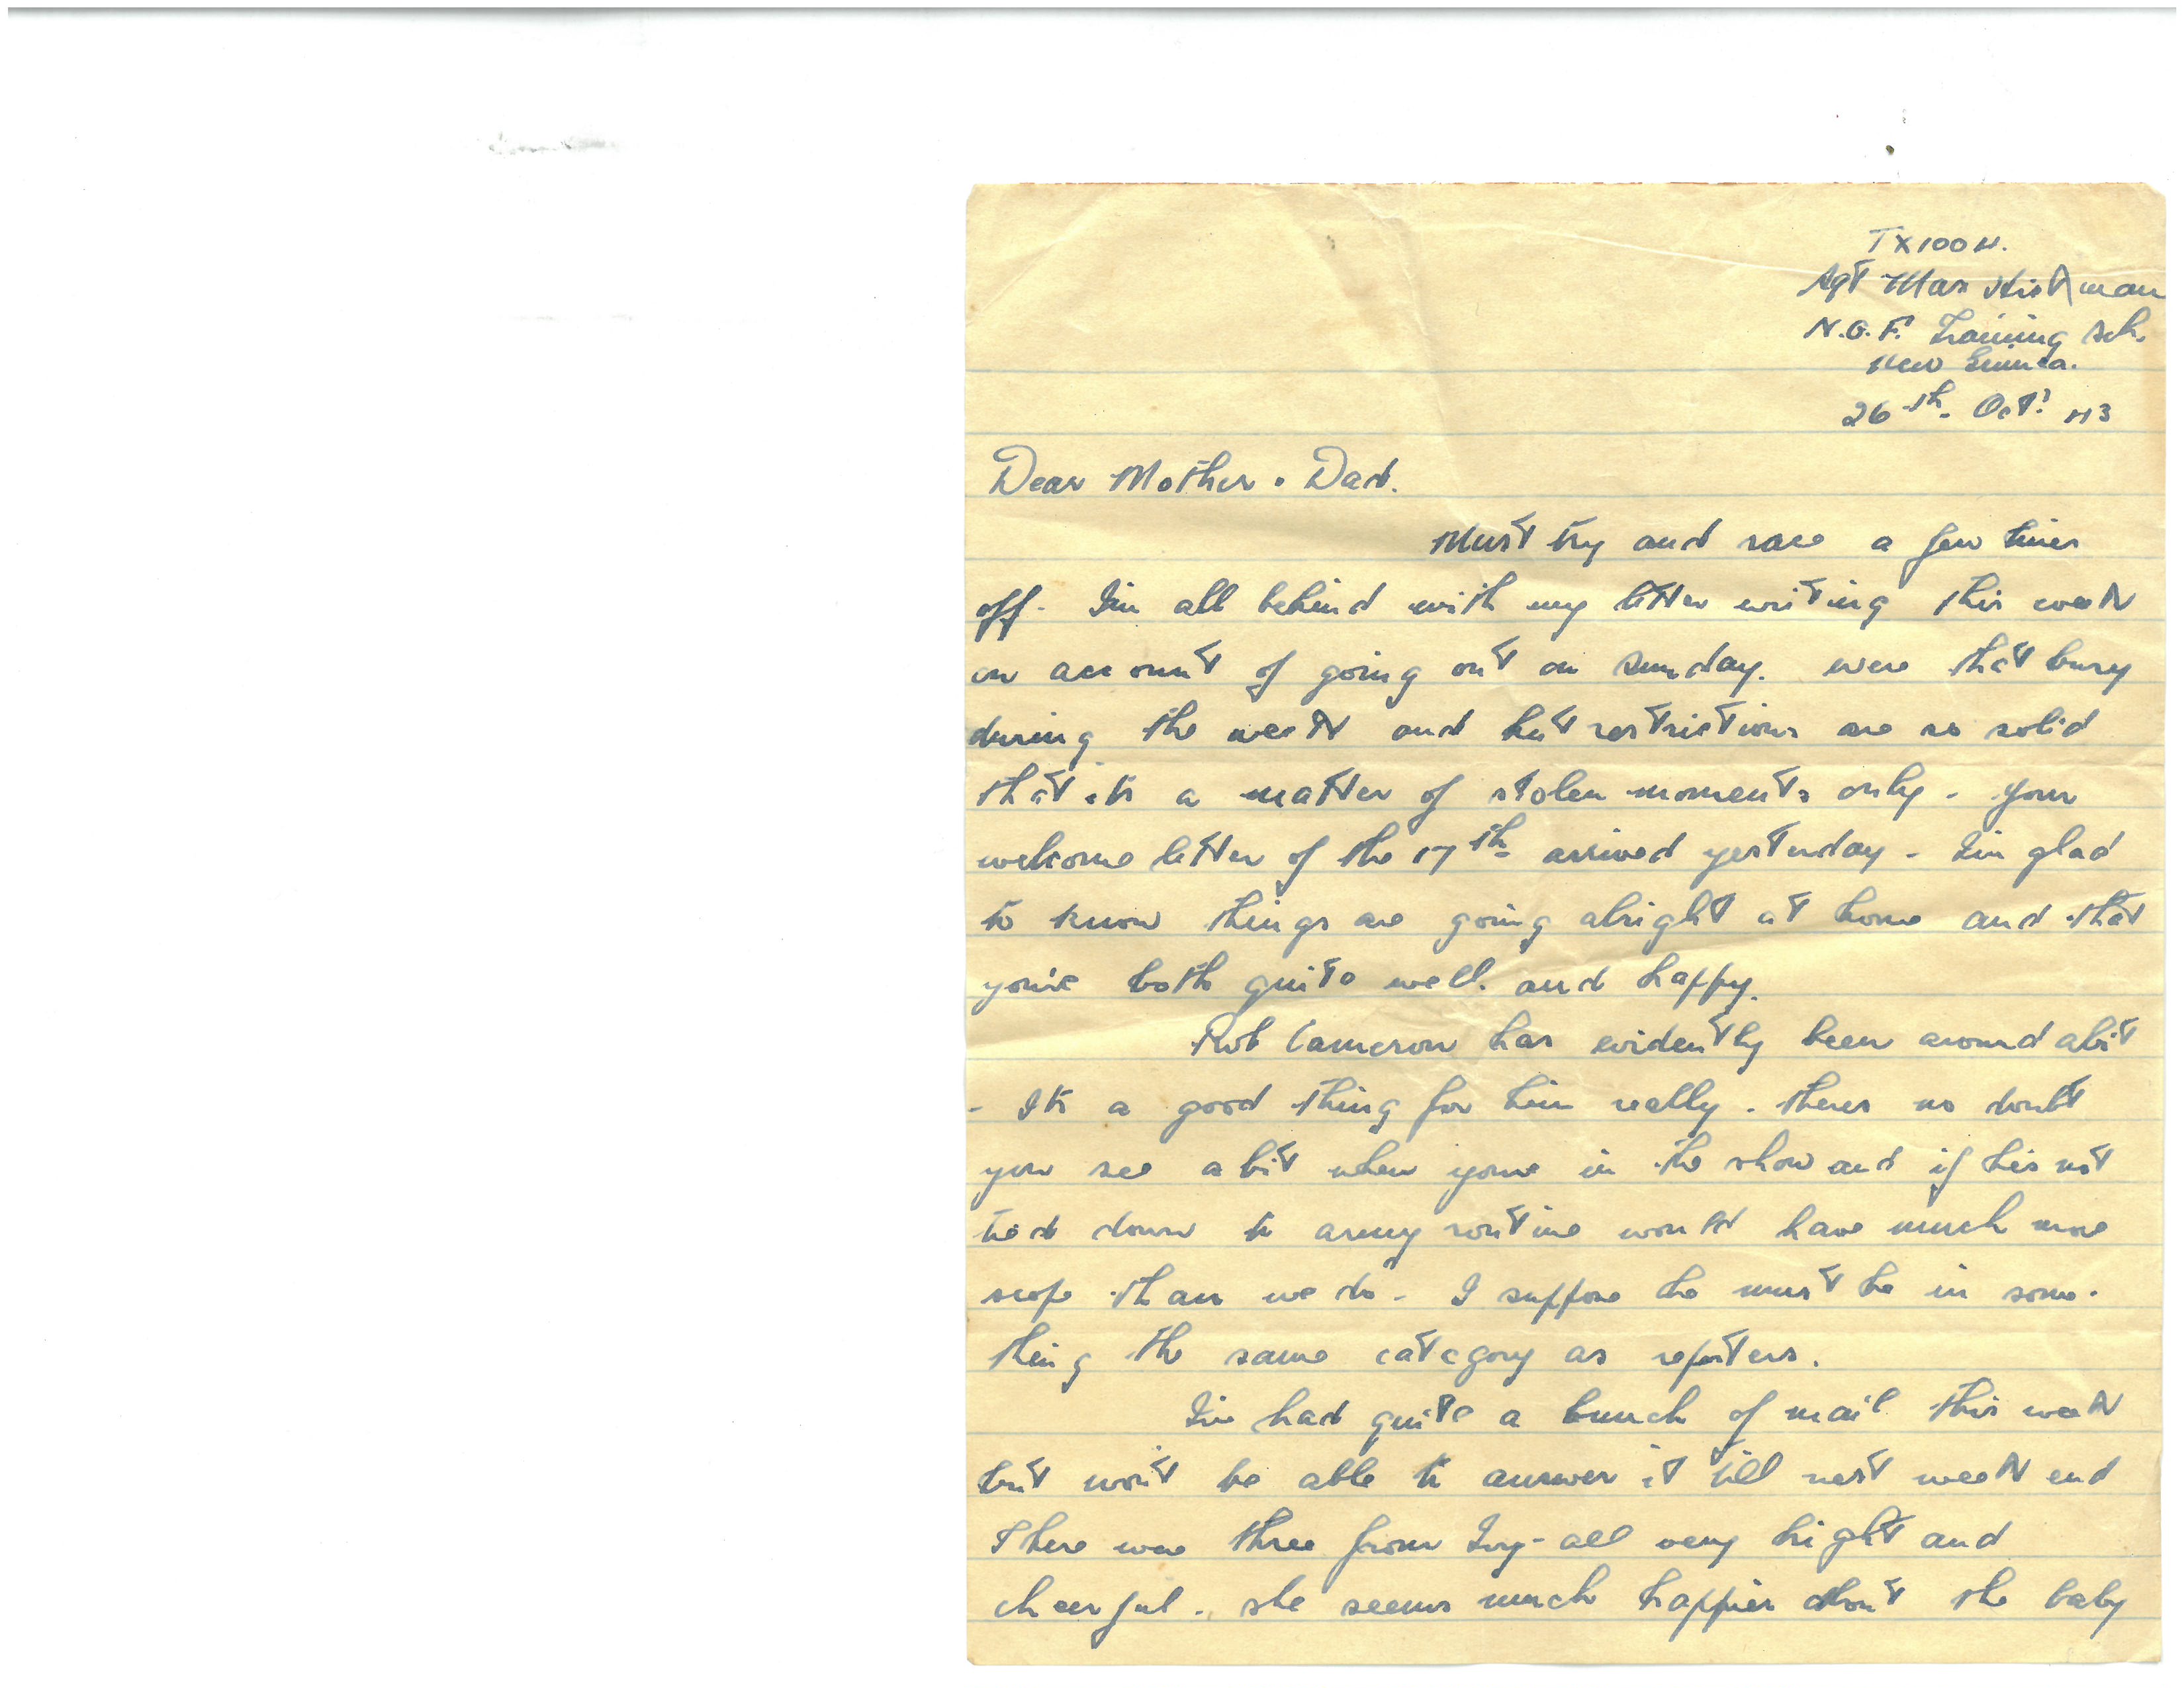 TX1004.
Sgt Max Hickman
N.G.F. Training Sch.
New Guinea.
26th. Oct. 43
Dear Mother & Dad.
Must try and race a few lines
off. I'm all behind with my letter writing this week
on account of going out on Sunday. were that busy
during the week and hut restrictions are so solid
that its a matter of stolen moments only. Your
welcome letter of the 17th arrived yesterday. I'm glad
to know things are going alright at home and that
you're both quite well. and happy.
Rob Cameron has evidently been around abit
- Its a good thing for him really. theres no doubt
you see a bit when youre in the show and if he's not
tied down to army routine would have much more
scope than we do. I suppose he must be in some-
thing the same category as reporters.
I've had quite a bunch of mail this week
but won't be able to answer it till next week end
There were three from Ivy - all very bright and
cheerful. she seems much happier about the baby